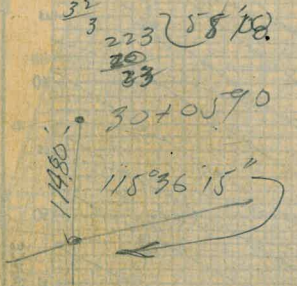 32
3
223
20
33
30+0590
114.80'
115°36'15"